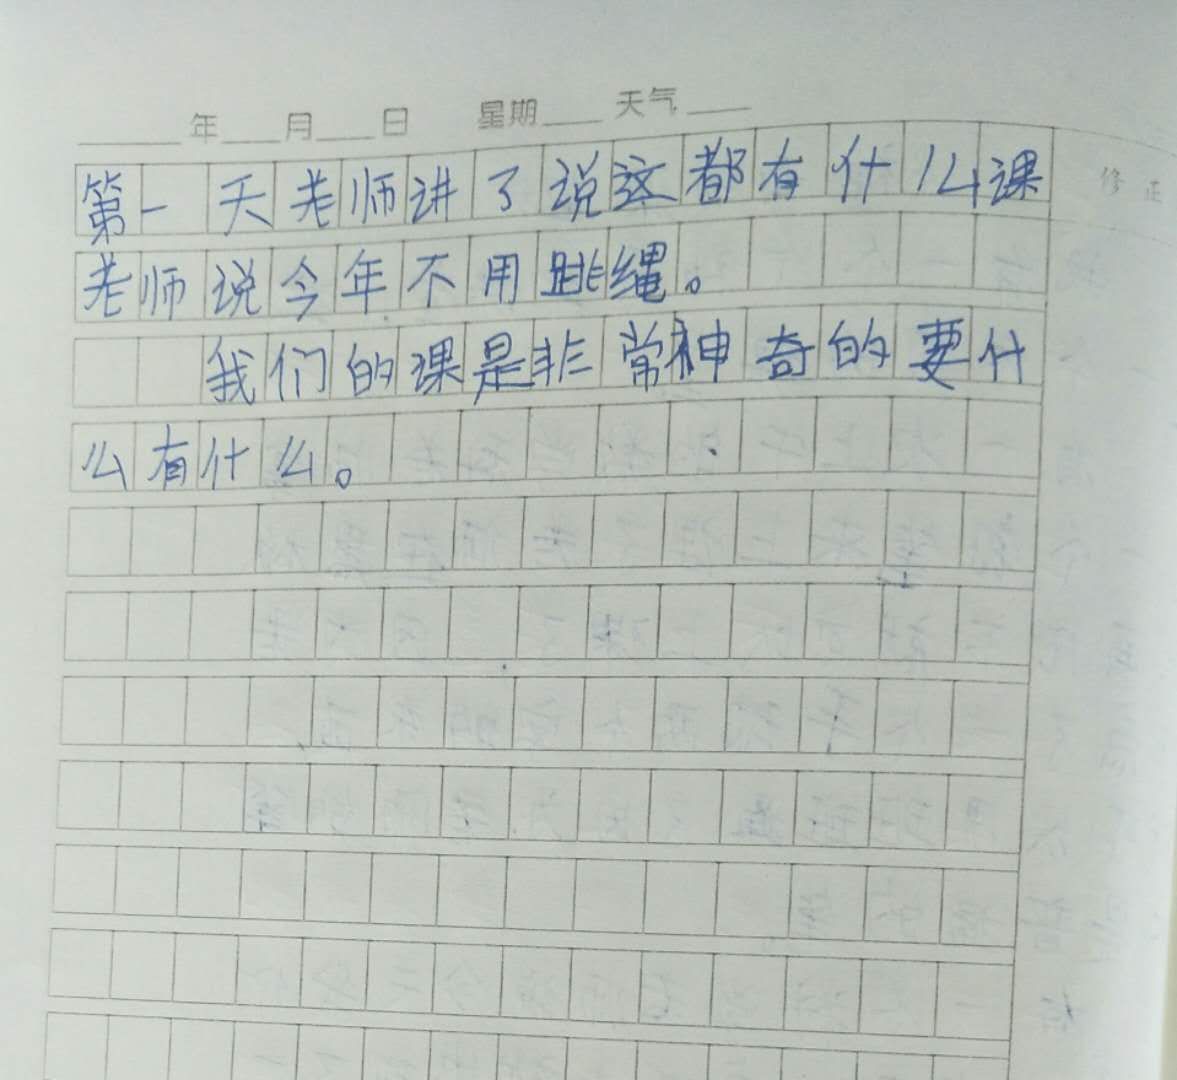 年 月 日 星期 天气
修正
第一天老师讲了说这都有什么课
老师说今年不用跳绳。
我们的课是非常神奇的要什
么有什么。